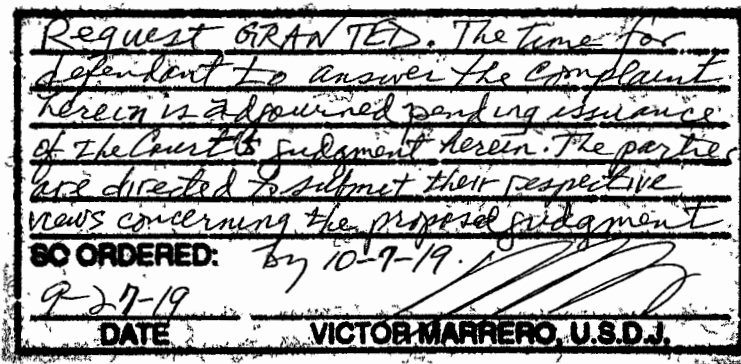 Request GRANTED. The time for
defendant to answer the complaint
herein is adjourned pending issuance
of the Court's judgment herein. The parties
are directed to submit their respective
views concerning the proposed judgment
SO ORDERED: by 10-7-19.
9-27-19
DATE VICTOR MARRERO, U.S.D.J.